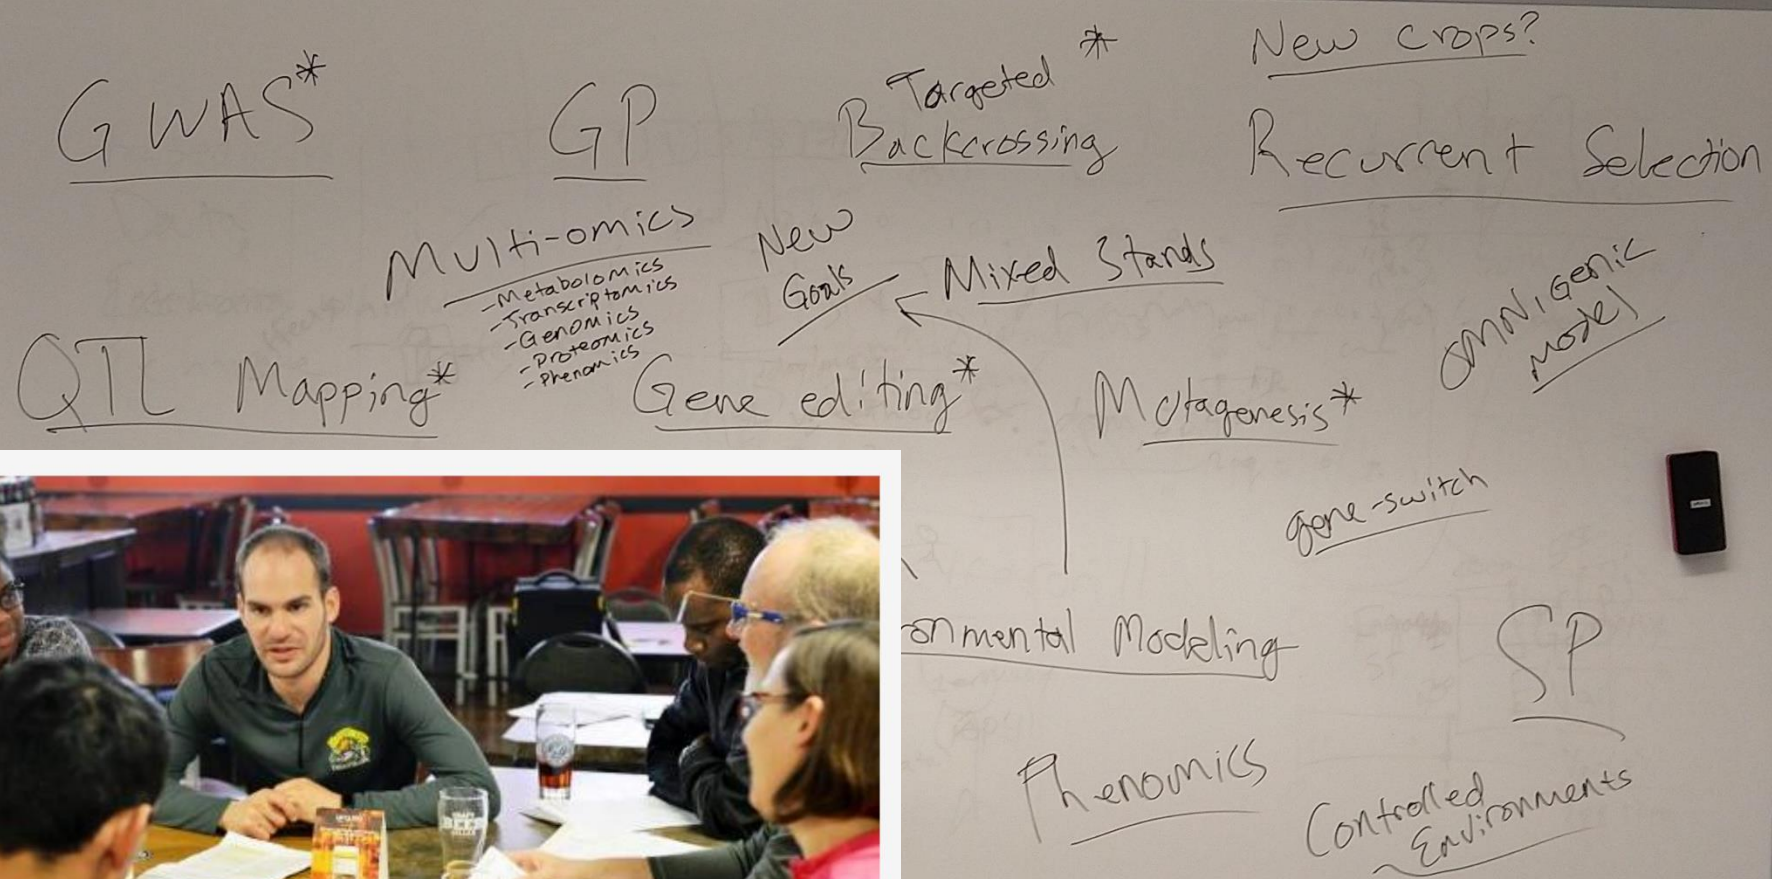 New crops?
GWAS*
GP
Targeted *
Backcrossing
Recurrent Selection
Multi-omics
- Metabolomics
- Transcriptomics
- Genomics
- Proteomics
- Phenomics
New
Goals
Mixed Stands
OMNIGENIC
Model
QTL Mapping*
Gene editing*
Mutagenesis*
gene-switch
onmental Modeling
SP
Phenomics
Controlled
Environments
BEER